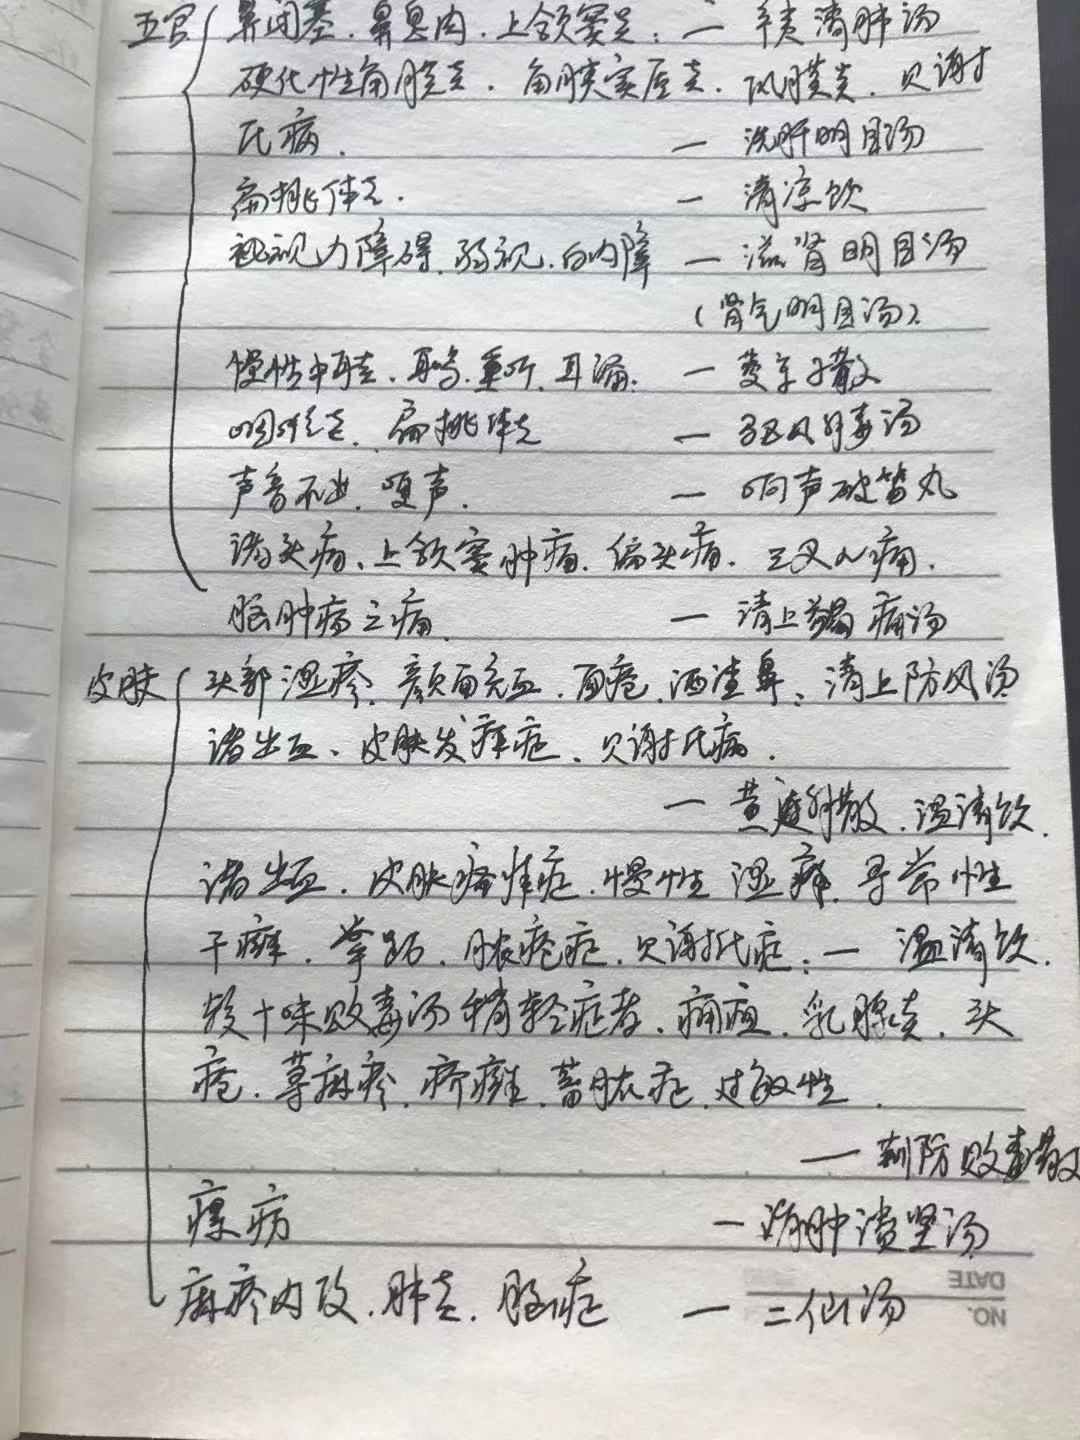 五官 鼻闭塞、鼻息肉、上颌窦炎: — 辛夷清肺汤
硬化性角膜炎、角膜实质炎、巩膜炎、贝谢
氏病. — 洗肝明目汤
扁桃体炎. — 清凉饮
视力障碍、弱视、白内障 — 滋肾明目汤
(肾气明目汤)
慢性中耳炎、耳鸣、重听、耳漏: — 蔓荆子散
咽喉炎、扁桃体炎 — 驱风解毒汤
声音不出、哽声. — 响声破笛丸
诸头痛、上颌窦肿痛、偏头痛、三叉N痛.
脑肿疡之痛 — 清上蠲痛汤
皮肤 头部湿疹、颜面充血、面疱、酒渣鼻: 清上防风汤
诸出血、皮肤发痒症、贝谢氏病.
— 黄连解散、温清饮.
诸出血、皮肤瘙痒症、慢性湿癣、寻常性
干癣、掌跖、脓疱症、贝谢氏症: — 温清饮.
较十味败毒汤稍轻症者、痈疽、乳腺炎、头
疮、荨麻疹、疥癣、蓄脓症、过敏性.
— 荆防败毒散
瘰疬 — 消肿溃坚汤
麻疹内攻、肺炎、脑症 — 二仙汤
DATE
NO.